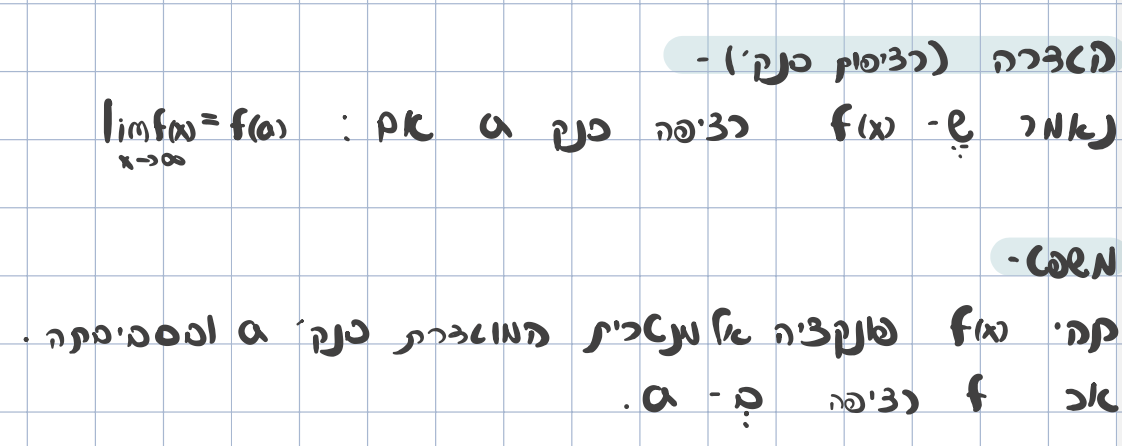 הגדרה (רציפות בנק׳) -
נאמר ש- f(x) רציפה בנק a אם : lim f(x) = f(a)
x→∞
משפט-
תהי f(x) פונקציה אלמנטרית המוגדרת בנק׳ a ובסביבתה .
אז f רציפה ב- a.